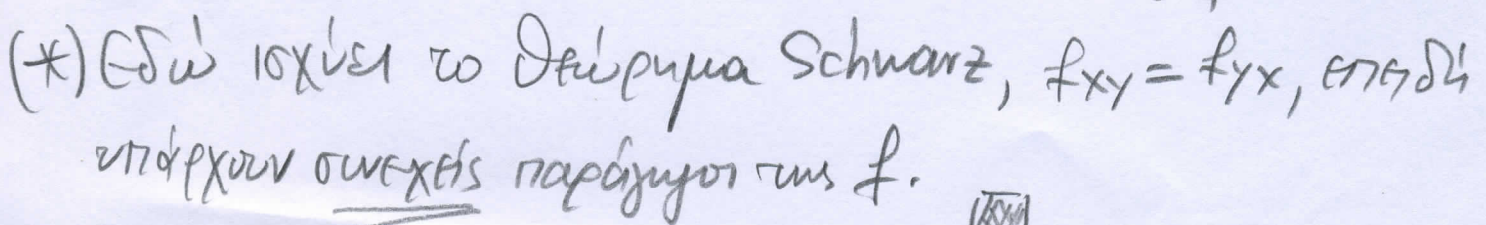 (*) Εδώ ισχύει το Θεώρημα Schwarz, fxy = fyx, επειδή
υπάρχουν συνεχείς παράγωγοι της f.